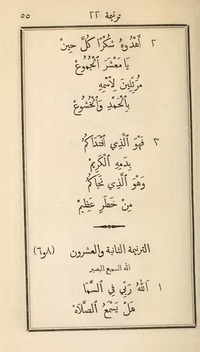 ترنيمة ٢٢ ٥٥
٢ أَهْدُوهُ شُكْرًا كُلَّ حِينْ
يَا مَعْشَرَ ٱلْجُمُوعْ
مُرَتِّلِينَ لِٱسْمِهِ
بِٱلْحَمْدِ وَٱلْخُشُوعْ
٣ فَهْوَ ٱلَّذِي ٱفْتَدَاكُمُ
بِدَمِهِ ٱلْكَرِيمْ
وَهْوَ ٱلَّذِي نَجَّاكُمُ
مِنْ خَطَرٍ عَظِيمْ
الترنيمة الثانية والعشرون (٨و٦)
الله السميع البصير
١ اَللهُ رَبِّي فِي ٱلسَّمَا
هَلْ يَسْمَعُ ٱلصَّلَاهْ